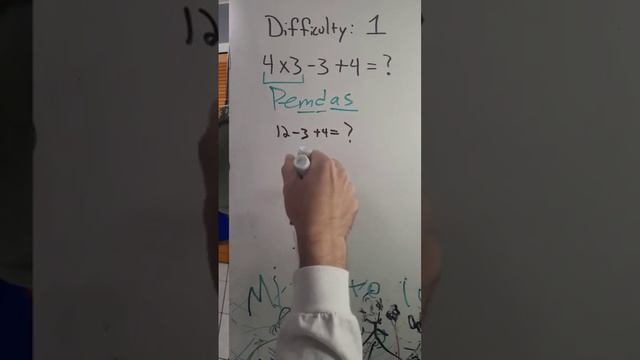 Difficulty: 1
4x3-3+4=?
Pemdas
12-3+4=?